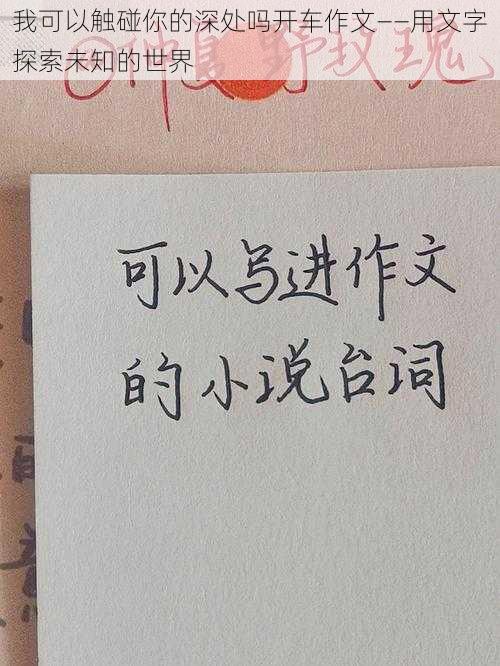 我可以触碰你的深处吗开车作文——用文字
探索未知的世界
@仲夏野玫瑰
可以写进作文
的小说台词